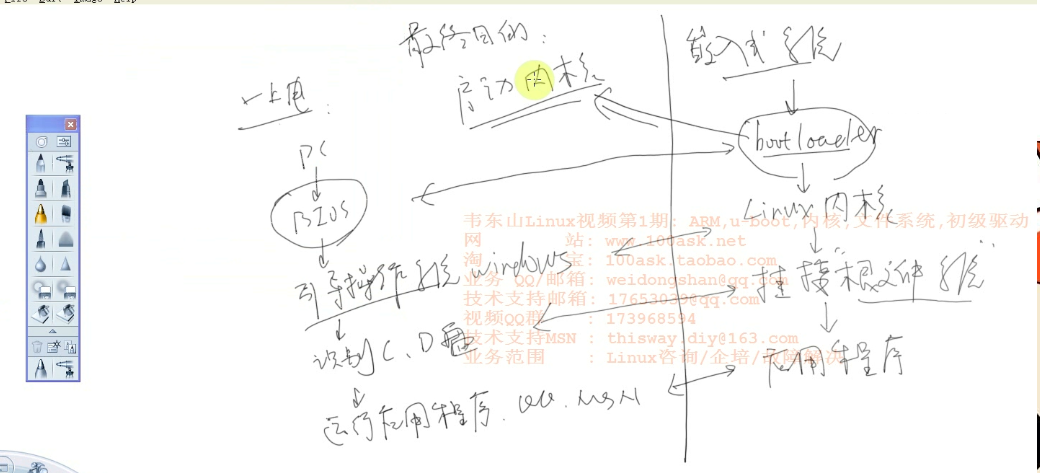 最终目的:
启动内核
一上电:
PC
BIOS
引导操作系统 windows
识别C、D盘
运行应用程序. QQ. MSN
嵌入式系统
bootloader
Linux内核
挂接"根文件系统"
应用程序
韦东山Linux视频第1期: ARM,u-boot,内核,文件系统,初级驱动
网 站: www.100ask.net
淘 宝: 100ask.taobao.com
业务 QQ/邮箱: weidongshan@qq.com
技术支持邮箱: 17653039@qq.com
视频QQ群 : 173968594
技术支持MSN : thisway.diy@163.com
业务范围 : Linux咨询/企培/故障解决